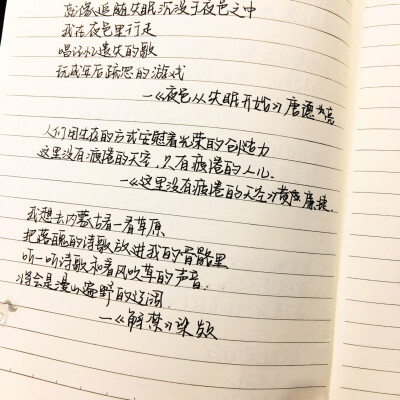 追随失眠沉没于夜色之中
我在夜色里行走
唱记忆遗失的歌
玩成年后疏忽的游戏
—《夜色从失眠开始》唐德喜
人们用生存的方式安慰着光荣的创造力
这里没有疲倦的天空,只有疲倦的人儿.
—《这里没有疲倦的天空》黄廉捷.
我想去内蒙古看一看草原
把落魄的诗歌放进我的骨骼里
听一听诗歌和着风吹草的声音.
将会是漫山遍野的辽阔.
—《解禁》梁颂